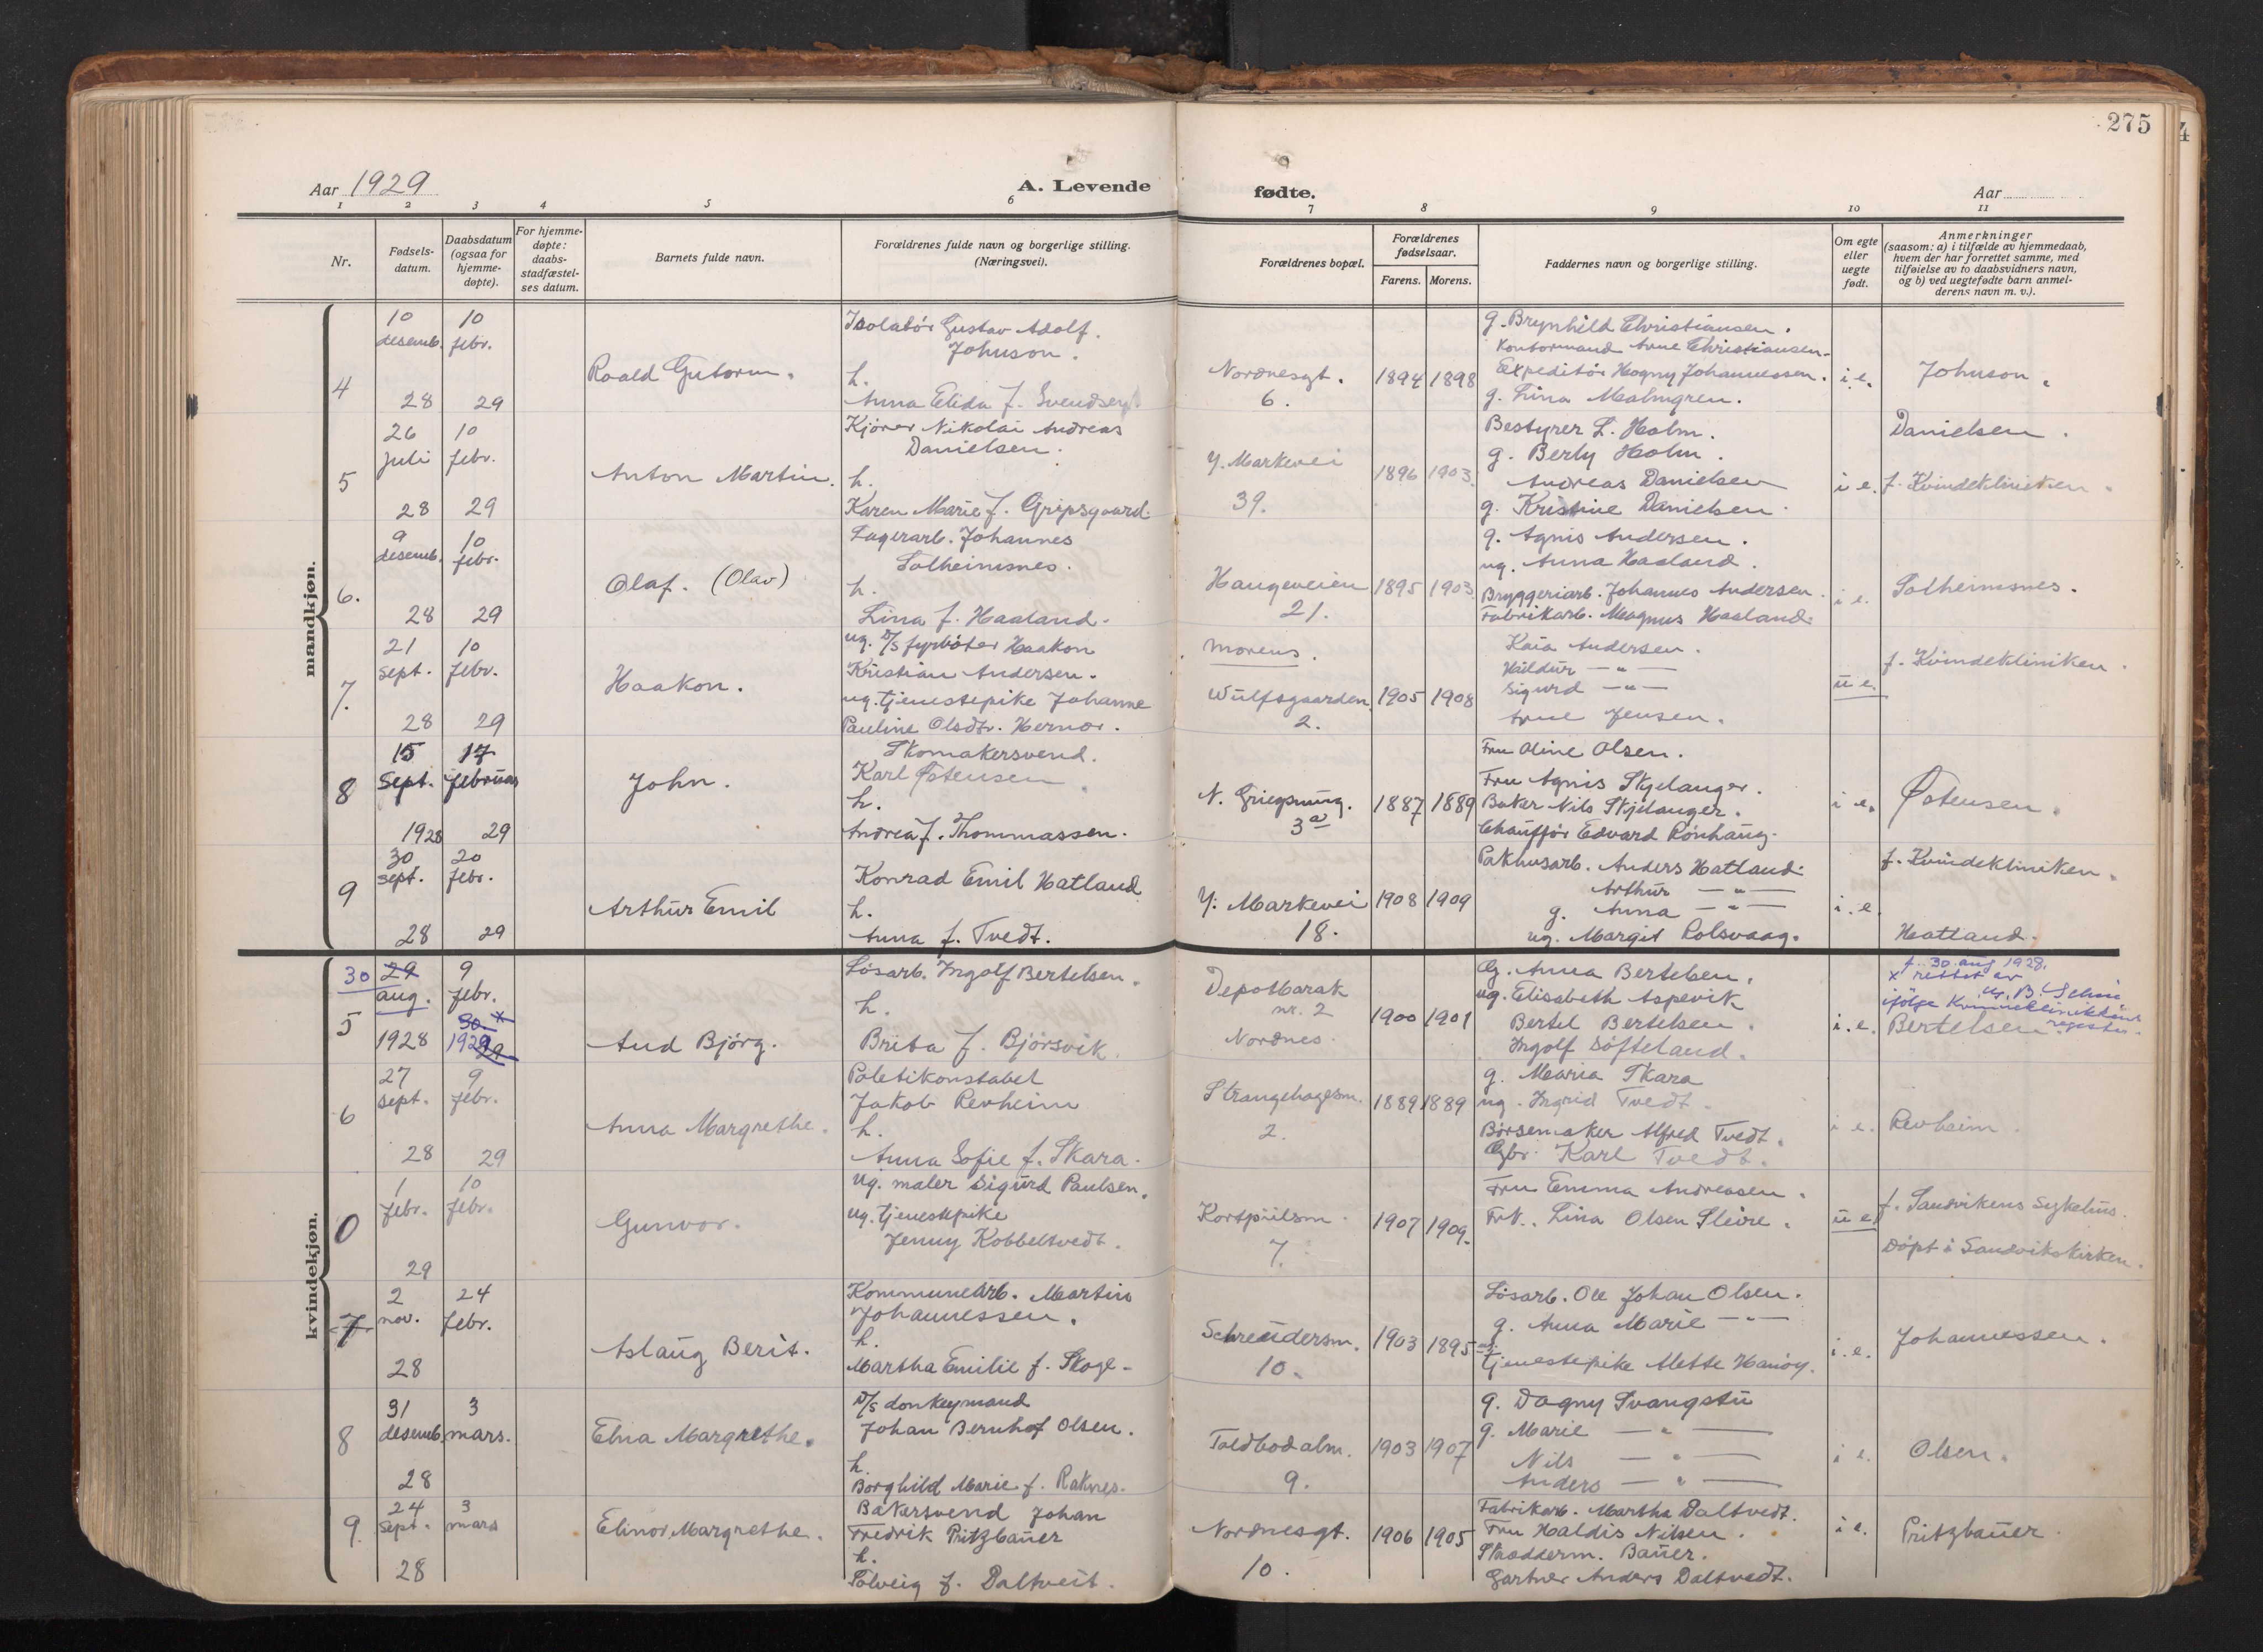 275
Aar 1929
A. Levende
fødte.
Aar
1 2 3 4 5 6 7 8 9 10 11
Nr.
Fødsels-
datum.
Daabsdatum
(ogsaa for
hjemme-
døpte).
For hjemme-
døpte:
daabs-
stadfæstel-
ses datum.
Barnets fulde navn.
Forældrenes fulde navn og borgerlige stilling.
(Næringsvei).
Forældrenes bopæl.
Forældrenes
fødselsaar.
Farens. Morens.
Faddernes navn og borgerlige stilling.
Om egte
eller
uegte
født.
Anmerkninger
(saasom: a) i tilfælde av hjemmedaab,
hvem der har forrettet samme, med
tilføielse av to daabsvidners navn,
og b) ved uegtefødte barn anmel-
derens navn m. v.).
mandkjøn.
4
10 desemb. 28
10 febr. 29
Roald Gutorm.
Isolatør Gustav Adolf
Johnson.
h.
Anna Elida f. Svendsen.
Nordnesgt.
6.
1894 1898
g. Brynhild Christiansen.
Kontormand Arne Christiansen.
Expeditør Hogny Johannessen.
g. Lina Malmgren.
i. e.
Johnson.
5
26 juli 28
10 febr. 29
Anton Martin.
Kjører Nikolai Andreas
Danielsen.
h.
Karen Marie f. Gripsgaard.
Y. Markevei
39.
1896 1903.
Bestyrer L. Holm.
g. Berly Holm.
Andreas Danielsen
g. Kristine Danielsen.
i e.
Danielsen.
f. Kvindekliniken.
6.
9 desemb. 28
10 febr. 29
Olaf. (Olav)
Lagerarb. Johannes
Solheimsnes.
h.
Lina f. Haaland.
Haugeveien
21.
1895 1903.
g. Agnis Andersen.
ug. Anna Haaland.
Bryggeriarb. Johannes Andersen.
Fabrikarb. Magnus Haaland.
i e.
Solheimsnes.
7.
21 sept. 28
10 febr. 29
Haakon.
ug. D/S fyrbøter Haakon
Kristian Andersen.
ug. tjenestepike Johanne
Pauline Olsdtr. Hernar.
Morens.
Wulfsgaarden
2.
1905 1908
Kaia Andersen.
Hildur — " —
Sigurd — " —
Arne Jensen.
u e.
f. Kvindekliniken.
8
15 Sept. 1928
17 februar 29
John.
Skomakersvend.
Karl Østensen
h.
Andrea f. Thommassen.
N. Griegsmug.
3a
1887 1889
Fru Oline Olsen.
Fru Agnis Skjelanger.
Baker Nils Skjelanger.
Chauffør Edvard Rønhaug.
i e.
Østensen.
9
30 sept. 28
20 febr. 29
Arthur Emil
Konrad Emil Hatland
h.
Anna f. Tvedt.
Y. Markevei
18.
1908 1909
Pakhusarb. Anders Hatland.
Arthur — " —
g. Anna — " —
ug. Margit Rolsvaag.
i. e.
f. Kvindekliniken.
Hatland.
kvindekjøn.
5
30 29 aug. 1928
9 febr. 30. x 1929 29
Aud Bjørg.
Løsarb. Ingolf Bertelsen.
h.
Brita f. Bjørsvik.
Depotbarak
nr. 2
Nordnes.
1900 1901
g. Anna Bertelsen.
ug. Elisabeth Aspevik
Bertel Bertelsen.
Ingolf Søfteland.
i. e.
f. 30. aug 1928.
x rettet av
ifølge Kvindeklinikkens
register.
Bertelsen
6
27 sept. 28
9 febr. 29
Anna Margrethe.
Poletikonstabel
Jakob Revheim
h.
Anna Sofie f. Skara.
Strangehagesm.
2.
1889 1889
g. Maria Skara
ug. Ingrid Tvedt.
Børsemaker Alfred Tvedt.
Gbr. Karl Tvedt.
i e.
Revheim.
0
1 febr. 29
10 febr.
Gunvor.
Ug. maler Sigurd Paulsen.
ug. tjenestepike
Jenny Kobbeltvedt.
Kortpiilsm.
7.
1907 1909.
Fru Emma Andreasen.
Frk. Lina Olsen Sleire.
u e
f. Sandvikens Sykehus.
Døpt i Sandvikskirken.
7
2 nov. 28
24 febr.
Aslaug Berit.
Kommunearb. Martin
Johannessen.
h.
Martha Emilie f. Skoge.
Schreudersm.
10.
1903 1895
Løsarb. Ole Johan Olsen.
g. Anna Marie — " —
tjenestepike Alette Hanøy.
i. e.
Johannessen.
8
31 desemb. 28
3 mars.
Elna Margrethe.
D/S donkeymand
Johan Bernhof Olsen.
h.
Borghild Marie f. Raknes.
Toldbodalm.
9.
1903 1907
g. Dagny Svangstu
g. Marie — " —
Nils — " —
Anders — " —
i e.
Olsen.
9.
24 sept. 28
3 mars
Elinor Margrethe.
Bakersvend Johan
Fredrik Pritzbauer
h.
Solveig f. Daltveit.
Nordnesgt.
10.
1906 1905
Fabrikarb. Martha Daltvedt.
Fru Haldis Nilsen.
Skrædderm. Bauer.
Gartner Anders Daltvedt.
i e.
Pritzbauer.